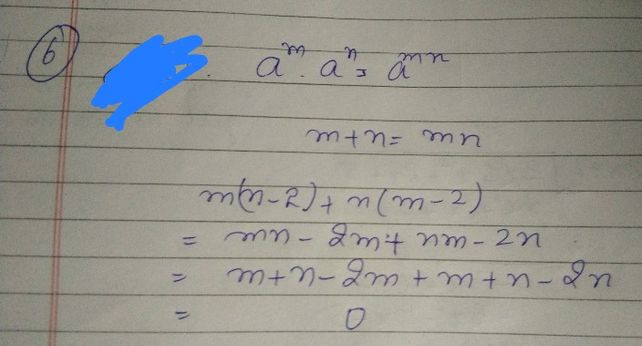 6 a^m . a^n = a^mn
m+n= mn
m(n-2)+ n(m-2)
= mn - 2m + nm - 2n
= m+n-2m + m+n-2n
= 0